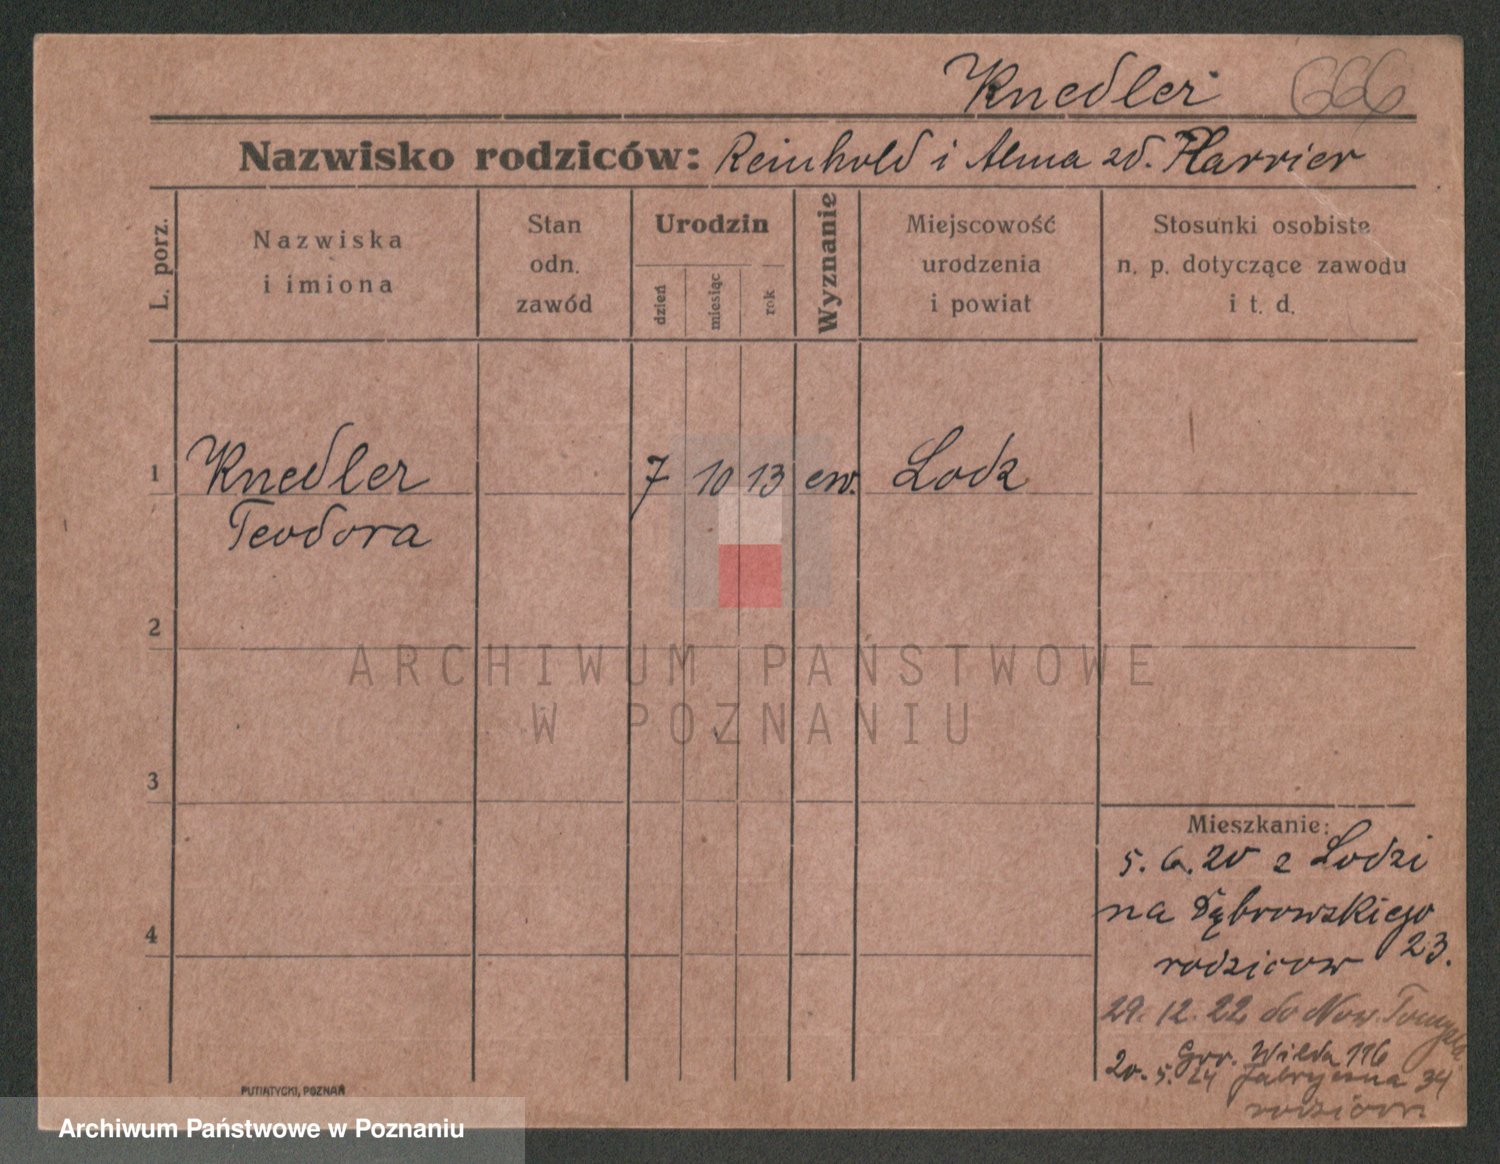 Knedler 666
Nazwisko rodziców: Reinhold i Alma zd. Harrier
L. porz.
Nazwiska
i imiona
Stan
odn.
zawód
Urodzin
dzień
miesiąc
rok
Wyznanie
Miejscowość
urodzenia
i powiat
Stosunki osobiste
n. p. dotyczące zawodu
i t. d.
1 Knedler 7 10 13 ew. Lodz
Teodora
2
3
4
Mieszkanie:
5. 6. 20 z Lodzi
na Dąbrowskiego
rodzicow 23.
29. 12. 22 do Now. Tomyśla
Grr. Wilda 116
20. 5. 24 Fabryczna 34
rodzicow
PUTIATYCKI, POZNAŃ
ARCHIWUM PAŃSTWOWE
W POZNANIU
Archiwum Państwowe w Poznaniu